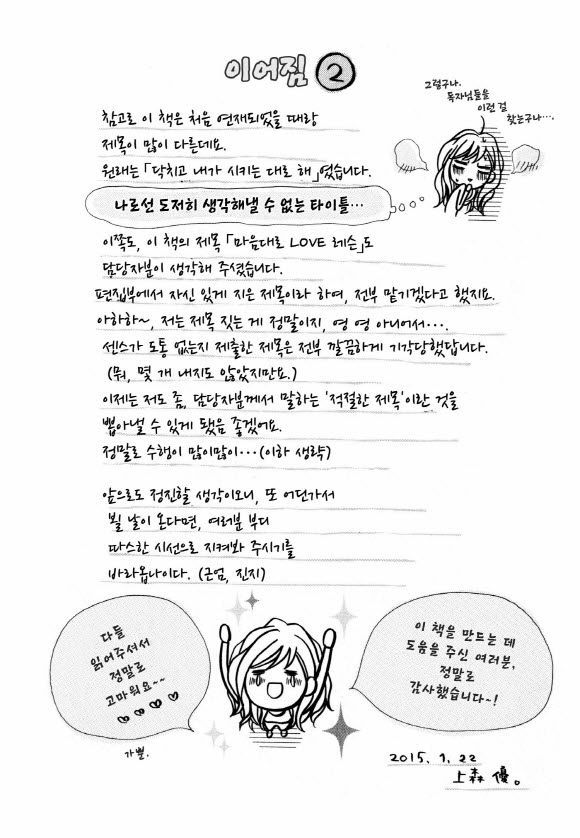 이어짐 ②
그렇구나.
독자님들을
이런 걸
찾는구나….
참고로 이 책은 처음 연재되었을 때랑
제목이 많이 다른데요.
원래는 「닥치고 내가 시키는 대로 해」였습니다.
나로선 도저히 생각해낼 수 없는 타이틀…
이쪽도, 이 책의 제목 「마음대로 LOVE 레슨」도
담당자분이 생각해 주셨습니다.
편집부에서 자신 있게 지은 제목이라 하여, 전부 맡기겠다고 했지요.
아하하~, 저는 제목 짓는 게 정말이지, 영 영 아니어서….
센스가 도통 없는지 제출한 제목은 전부 깔끔하게 기각당했답니다.
(뭐, 몇 개 내지도 않았지만요.)
이제는 저도 좀, 담당자분께서 말하는 '적절한 제목'이란 것을
뽑아낼 수 있게 됐음 좋겠어요.
정말로 수행이 많이많이…(이하 생략)
앞으로도 정진할 생각이오니, 또 어딘가서
뵐 날이 온다면, 여러분 부디
따스한 시선으로 지켜봐 주시기를
바라옵나이다. (근엄, 진지)
다들
읽어주셔서
정말로
고마워요~~
가뿐.
이 책을 만드는 데
도움을 주신 여러분,
정말로
감사했습니다~!
2015. 1. 22
上森 優。